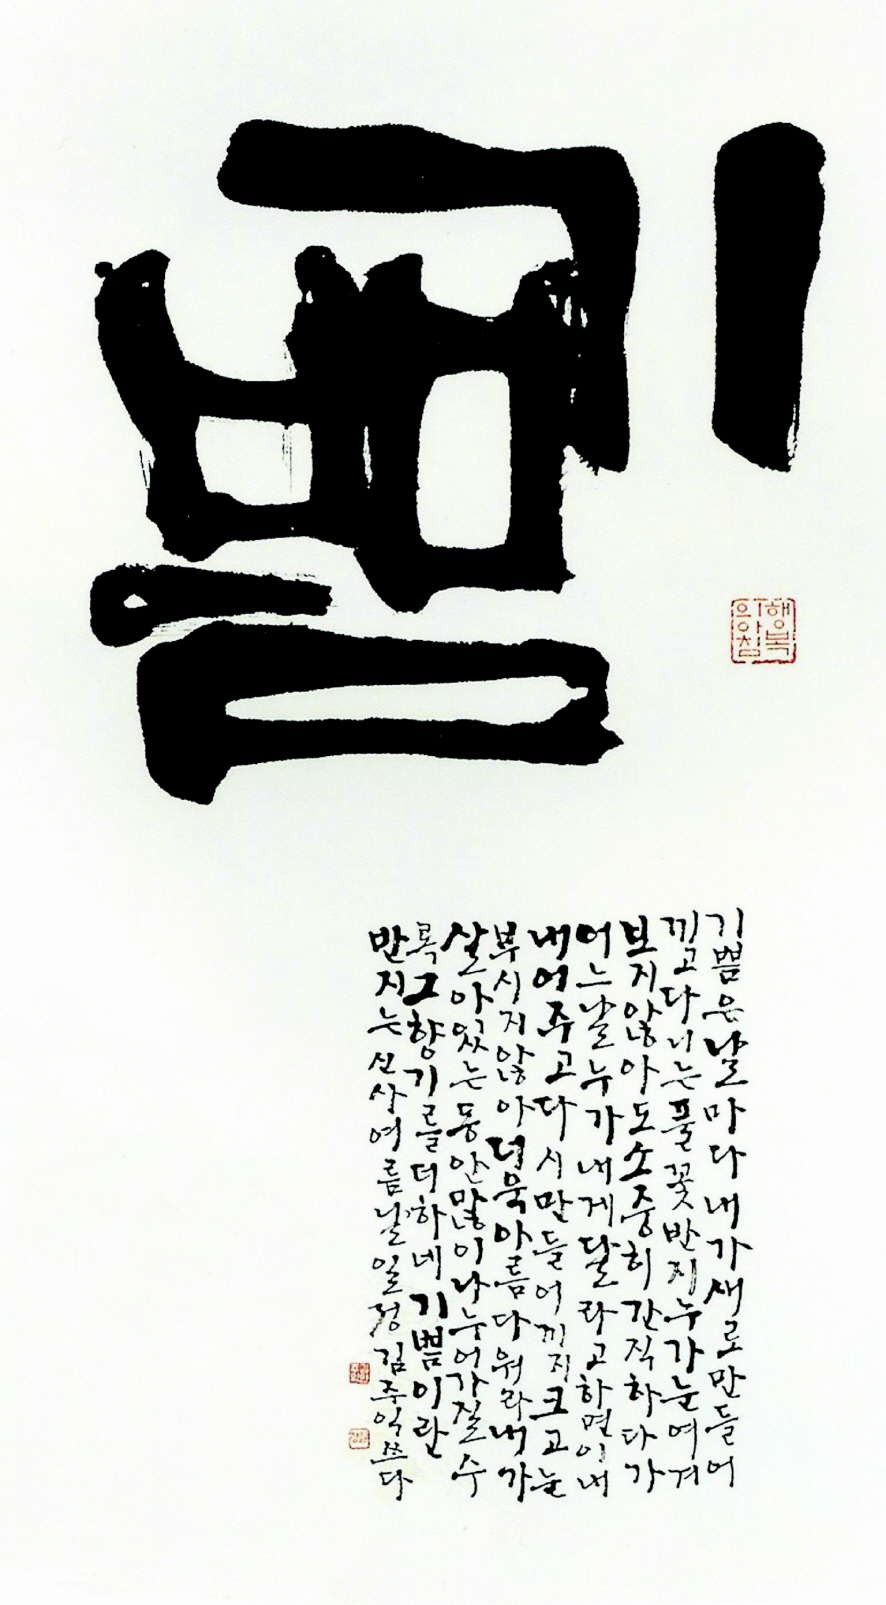 기쁨
행복
의아침
기쁨은날마다내가새로만들어
끼고다니는풀꽃반지누가눈여겨
보지않아도소중히간직하다가
어느날누가내게달라고하면이내
내어주고다시만들어끼지크고눈
부시지않아더욱아름다워라내가
살아있는동안많이나누어가질수
록그향기를더하네기쁨이란
반지는 신사여름날일정김주익쓰다